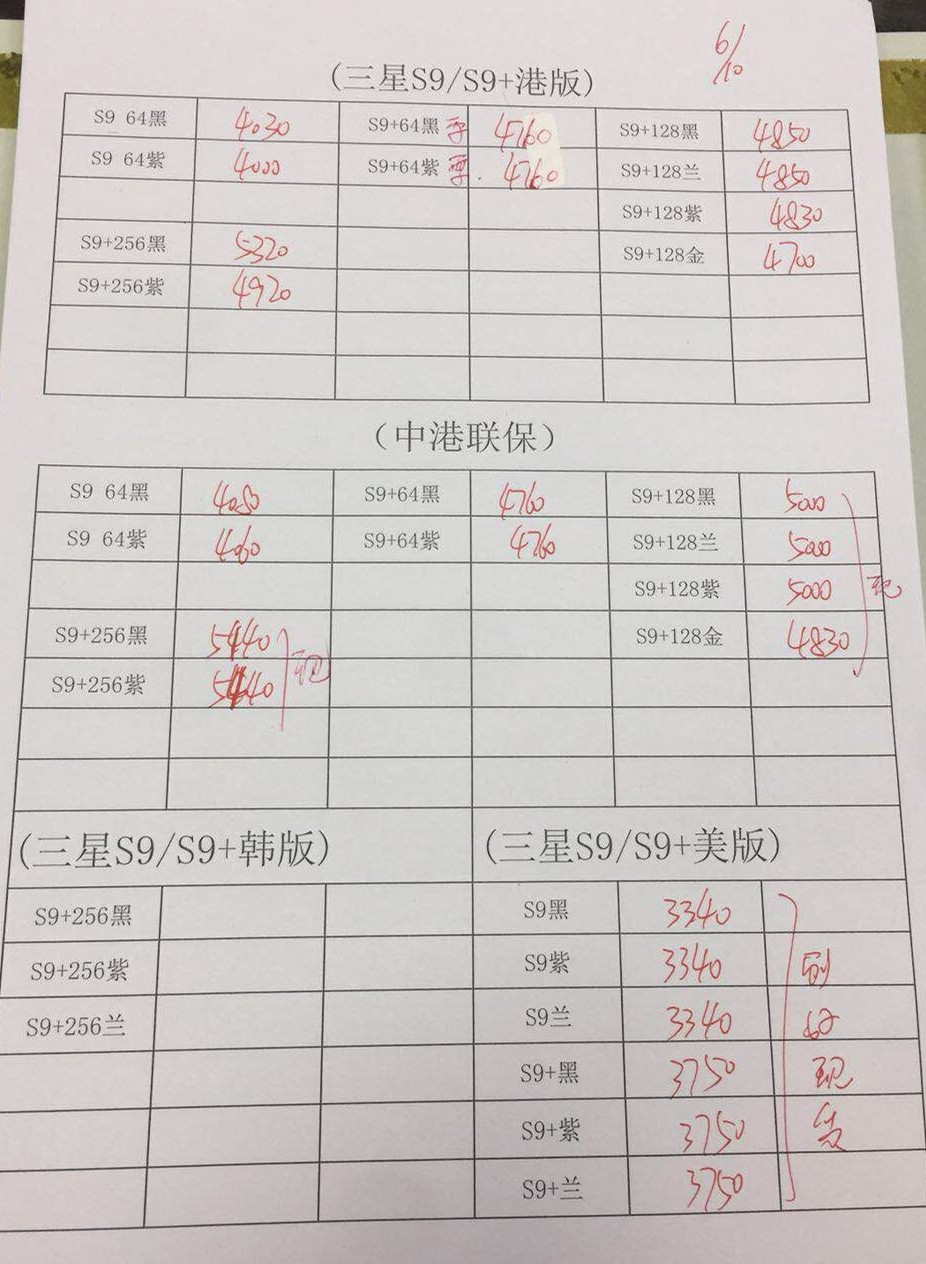 6/10
(三星S9/S9+港版)
S9 64黑 4030 S9+64黑 4760 S9+128黑 4850
S9 64紫 4000 S9+64紫 4760 S9+128兰 4850
S9+128紫 4830
S9+256黑 5320 S9+128金 4700
S9+256紫 4920
(中港联保)
S9 64黑 4080 S9+64黑 4760 S9+128黑 5000
S9 64紫 4060 S9+64紫 4760 S9+128兰 5000
S9+128紫 5000 现
S9+256黑 5440 S9+128金 4830
S9+256紫 5440 现
(三星S9/S9+韩版) (三星S9/S9+美版)
S9+256黑 S9黑 3340
S9+256紫 S9紫 3340
S9+256兰 S9兰 3340
S9+黑 3750 现
S9+紫 3750 货
S9+兰 3750